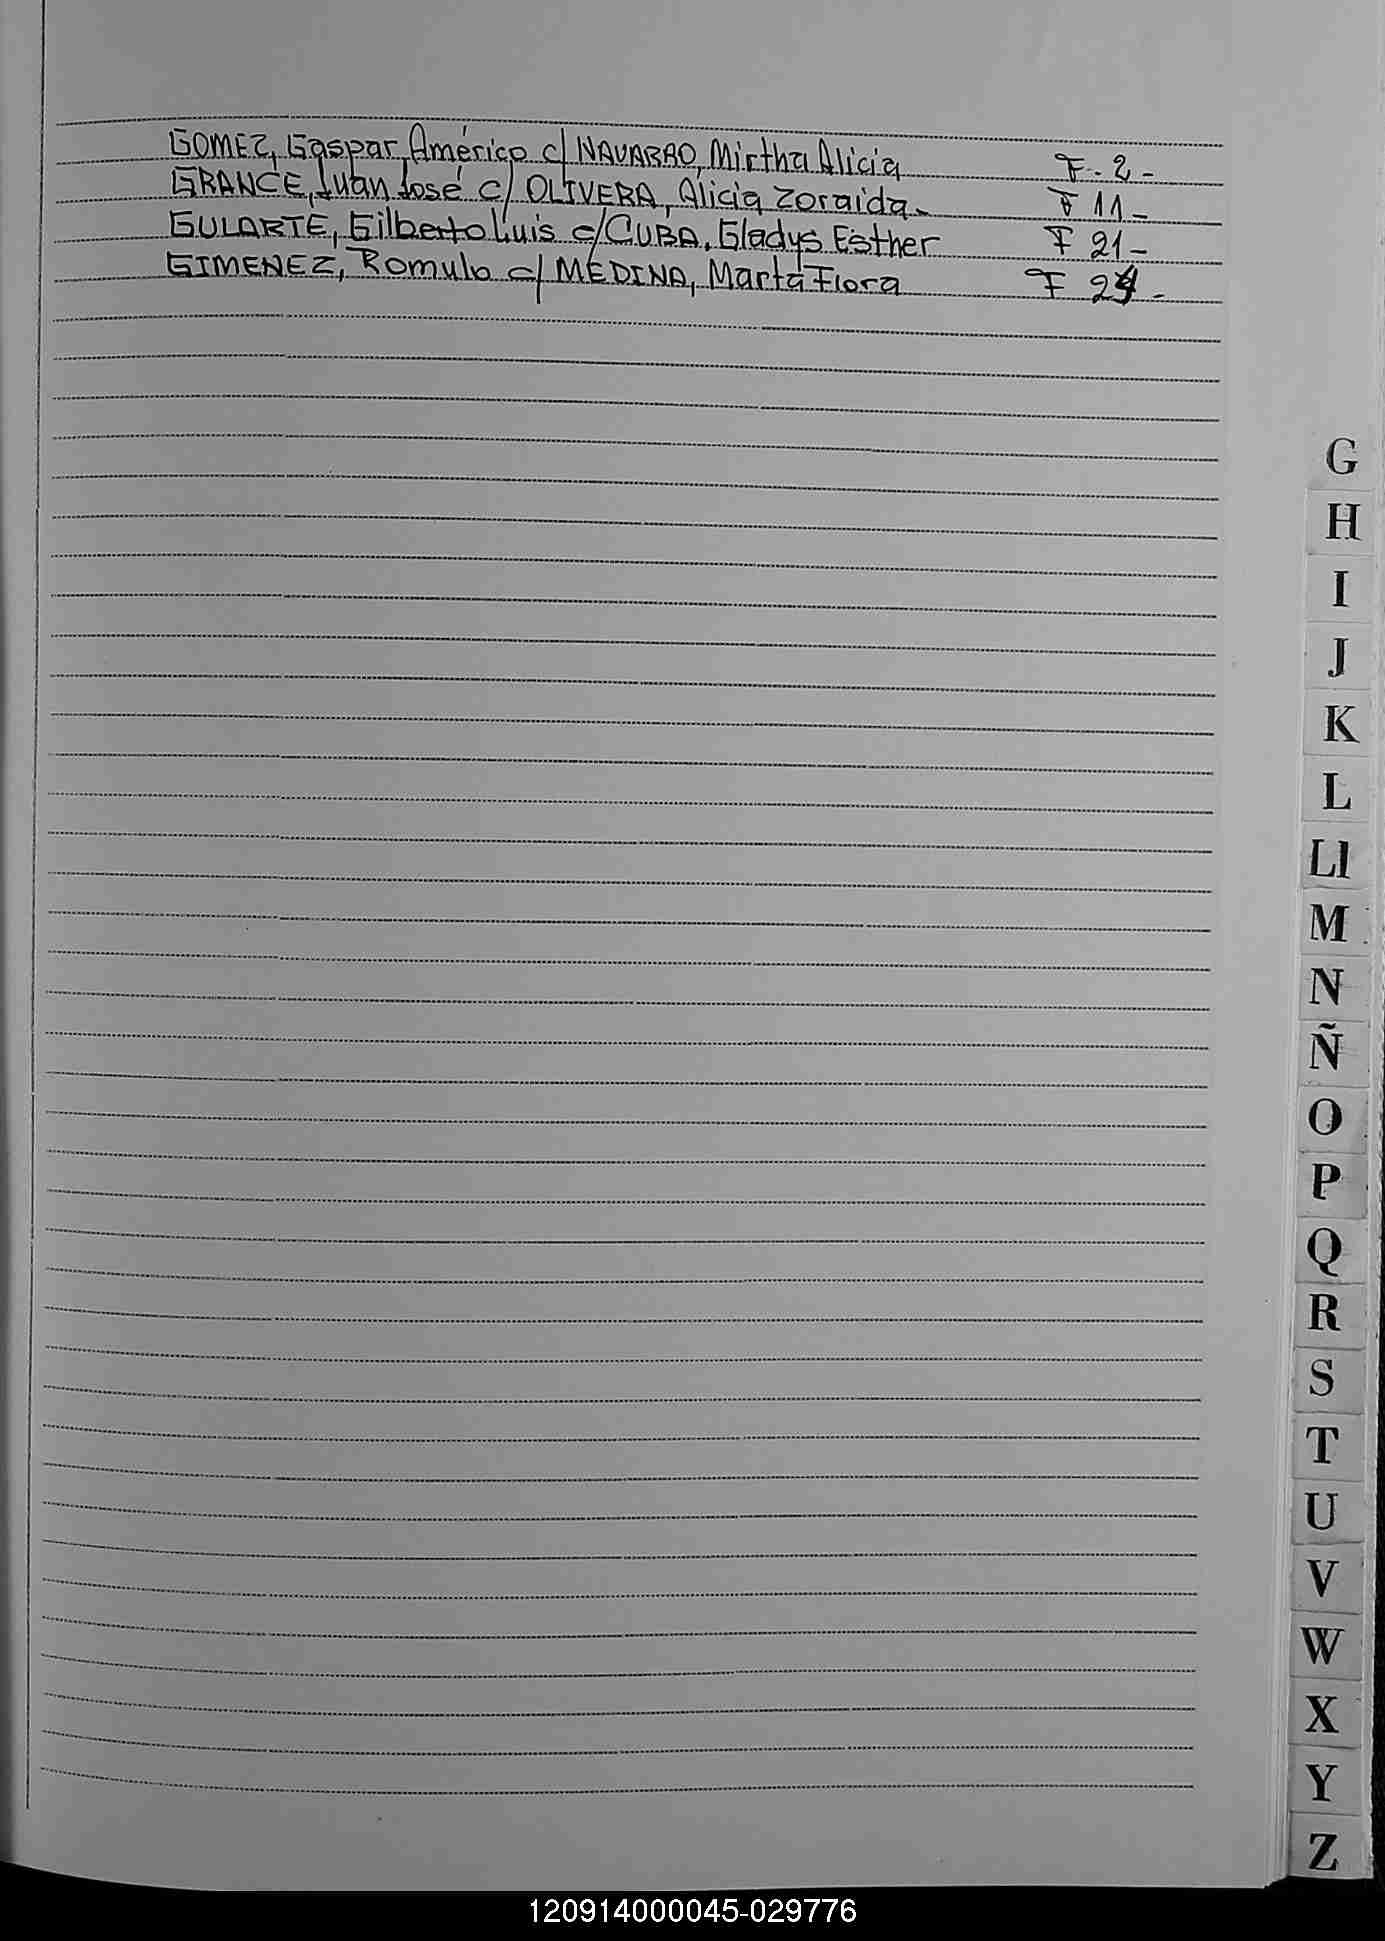 GOMEZ, Gaspar Américo c/ NAVARRO, Mirtha Alicia F. 2 -
GRANCE, Juan José c/ OLIVERA, Alicia Zoraida - F 11 -
GULARTE, Gilberto Luis c/ CUBA, Gladys Esther F 21 -
GIMENEZ, Romulo c/ MEDINA, Marta Flora F 24 -
G
H
I
J
K
L
Ll
M
N
Ñ
O
P
Q
R
S
T
U
V
W
X
Y
Z
120914000045-029776